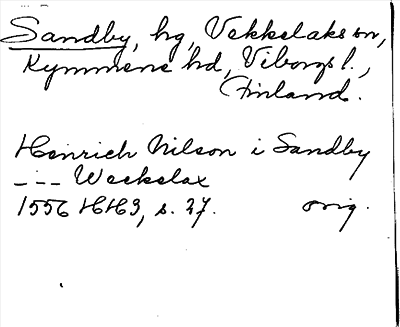 Sandby, hg, Vekkelaks sn,
Kymmene hd, Viborgs l.,
Finland.
Henrich Nilson i Sandby
_ . _ . _ Weckelax
1556 HH3, s. 27. orig.